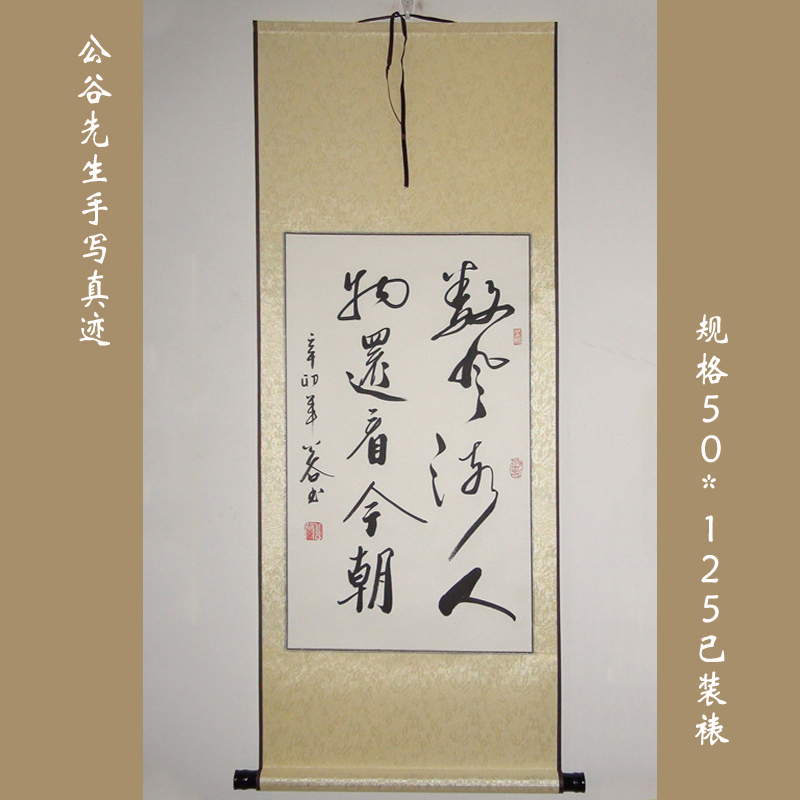 公谷先生手写真迹
数风流人
物還看今朝
辛卯年 公谷书
规格50*125已装裱